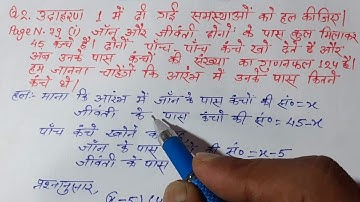 Q.2. उदाहरण 1 में दी गई समस्याओं को हल कीजिए।
Page N. 79 (i) जॉन और जीवंती दोनों के पास कुल मिलाकर
45 कंचे हैं। दोनों पाँच-पाँच कंचे खो देते हैं और
अब उनके पास कंचों की संख्या का गुणनफल 124 है।
हम जानना चाहेंगे कि आरंभ में उनके पास कितने
कंचे थे।
हल:- माना कि आरंभ में जॉन के पास कंचों की सं० = x
जीवंती के पास कंचों की सं० = 45-x
पाँच कंचे खोने के
जॉन के पास की सं० = x-5
जीवंती के पास
प्रश्नानुसार,
(x-5)